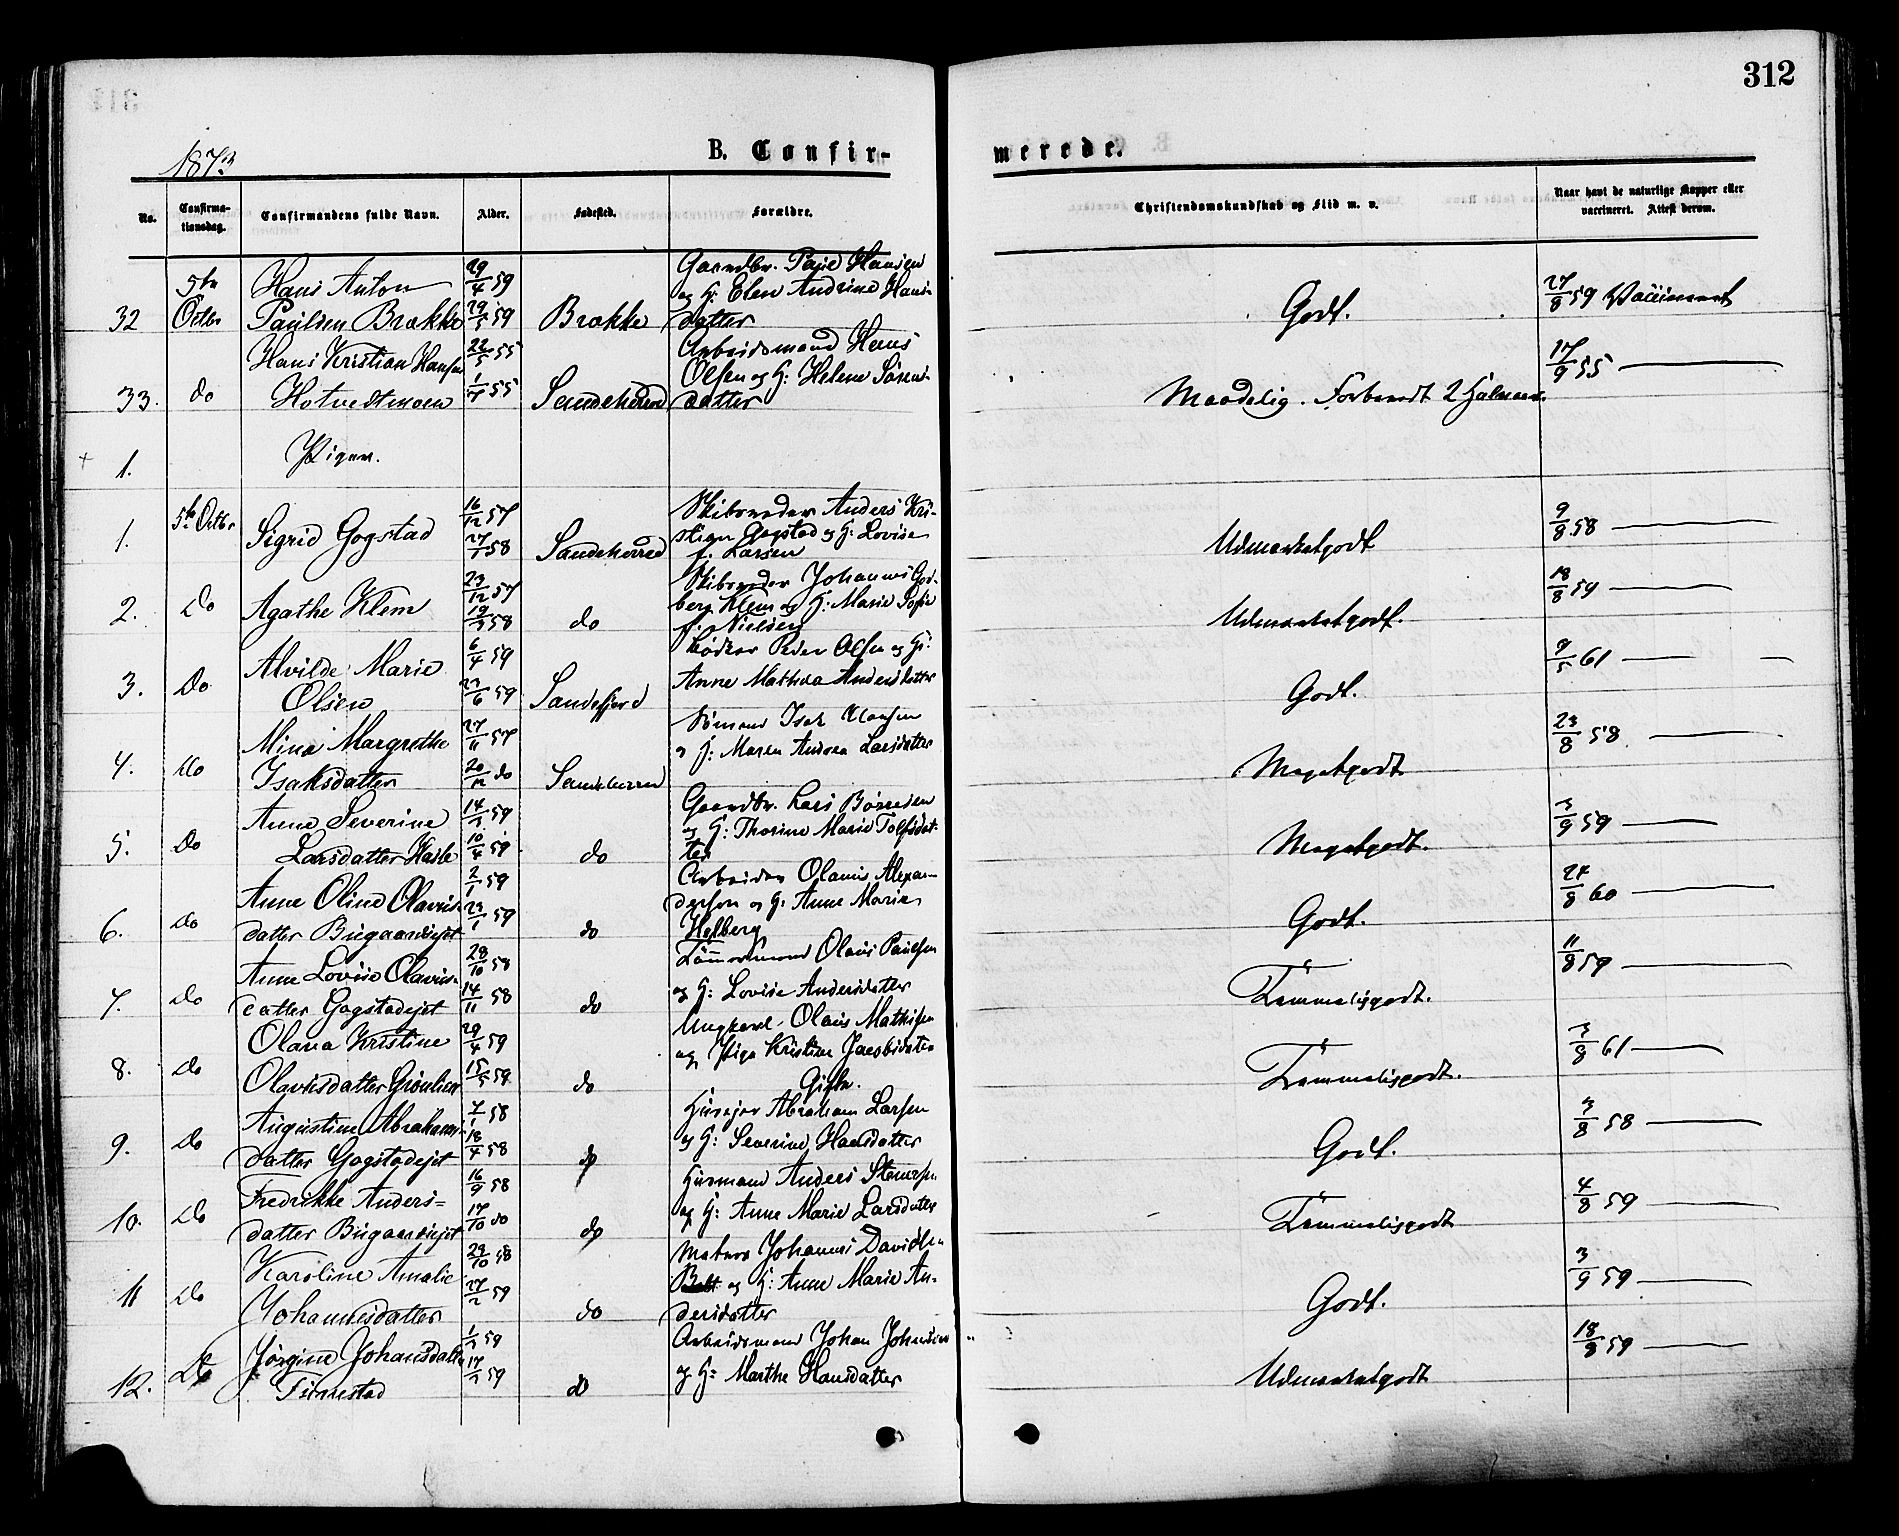 312
1873
B. Confir-
merede.
No.
Confirma-
tionsdag.
Confirmandens fulde Navn.
Alder.
Fødested.
Forældre.
Christendomskundskab og Flid m. v.
Naar havt de naturlige Kopper eller
vaccineret. Attest derom.
32 5te Octbr Hans Anton Paulsen Brække 29/4 59 29/5 59 Brække
og H: Elen Andrine Hans-
datter
Godt. 27/8 59 Vaccineret
33. do Hans Kristian Hansen Hotvedtmoen 22/5 55 1/7 55 Sandeherred
Arbeidsmand Hans
Olsen og H: Helene Søren-
datter
Maadelig. 17/9 55
1. Piger.
1. 5te Octbr Sigrid Gogstad 16/12 57 27/1 58 Sandeherred
Skibsreder Anders Kri-
stian Gogstad og H: Lovise
f. Larsen
Udmærketgodt 9/8 58
2. Do Agathe Klem 23/12 57 19/3 58 do
Skibsreder Johannes
Klem og H: Marie Sofie
f. Nielsen
Udmærketgodt. 18/8 59
3. Do Alvilde Marie Olsen 6/4 59 23/6 59 Sandefjord
Peder Olsen og H:
Anne Mathea Andersdatter
Godt. 9/5 61
4. Do Mina Margrethe Isaksdatter 27/11 57 20/12 do Sandeherred
Sømand Isak Hansen
og H: Maren Andrea Larsdatter
Megetgodt 23/8 58
5. Do Anne Severine Larsdatter Hasle 14/3 59 10/4 59 do
Gaardbr. Lars Børresen
og H: Thorine Marie Tolfsdat-
ter
Megetgodt. 3/9 59
6. Do Anne Oline Olavus-
datter Bugaardsejet 2/1 59 23/1 59 do
Arbeider Olavus Alexan-
dersen og H: Anne Marie
Helberg
Godt. 24/8 60
7. Do Anne Lovise Olavus-
datter Gogstadejet 28/10 58 14/11 58 do
Tømmermand Olaus Paulsen
og H: Lovise Andersdatter
Temmeliggodt. 11/8 59
8. Do Olava Kristine Olavesdatter 29/4 59 15/5 59 do
Ungkarl Olaus Mathisen
og Pige Kristine Jacobsdatter
Temmeliggodt. 3/8 61
9. Do Augustine Abrahams-
datter Gogstadejet 7/1 58 18/4 58 do
Husejer Abraham Larsen
og H: Severine Hansdatter
Godt. 3/8 58
10. Do Fredrikke Anders-
datter Bugaardsejet 16/9 58 17/10 do do
Husmand Anders
og H: Anne Marie Larsdatter
Temmeliggodt 4/8 59
11 Do Karoline Amalie Johannesdatter 29/10 58 27/2 59 do
Matros Johannes Davidsen
og H: Anne Marie An-
dersdatter
Godt. 3/9 59
12. Do Jørgine Johansdatter Finnestad 1/3 59 17/3 59 do
Arbeidsmand Johan Johnsen
og H: Marthe Hansdatter
Udmærketgodt 18/8 59